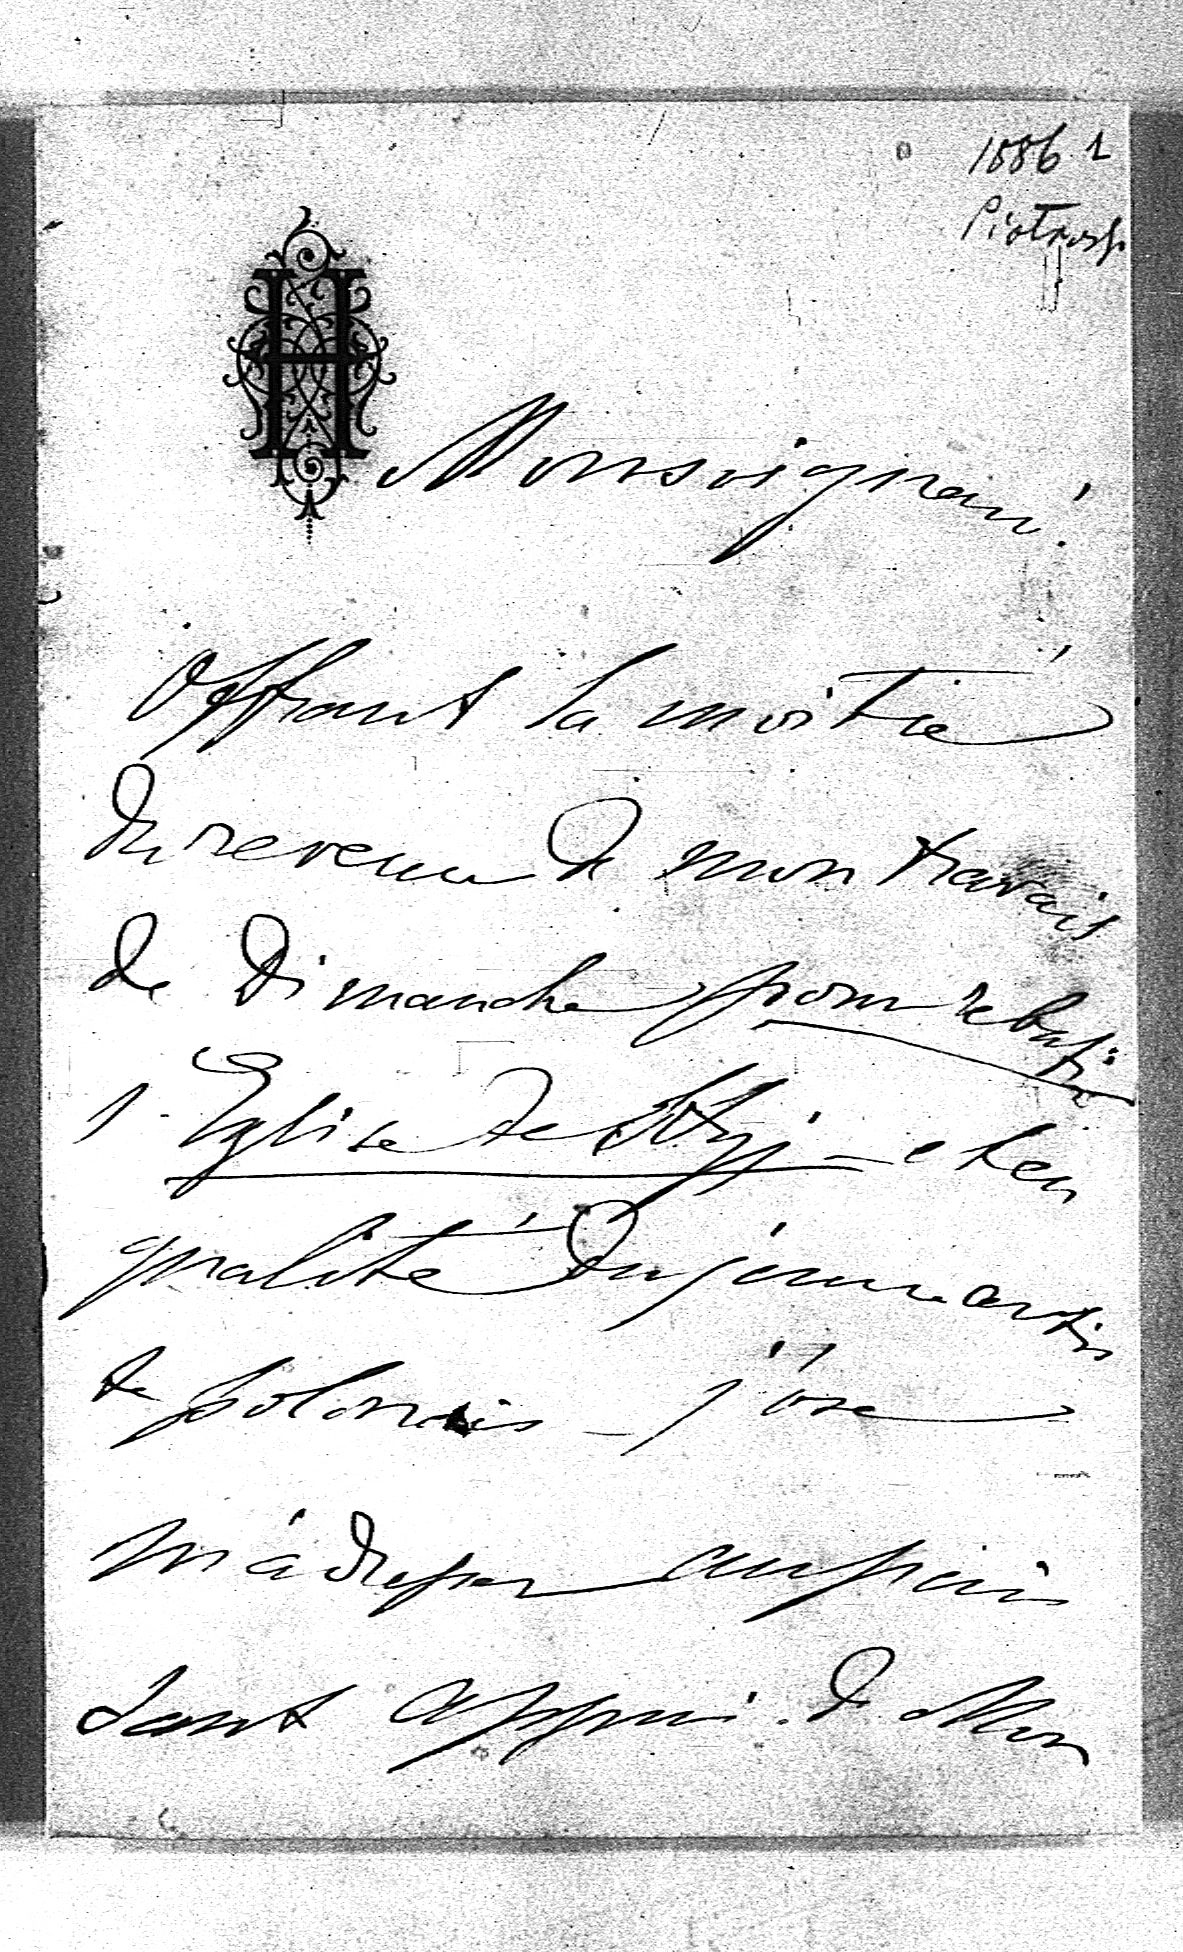 1886 1
Piotrows
H
Monseigneur!
Offrant la moitié
du revenu de mon travail
de Dimanche pour rebatir
l'Eglise de Stryj – et en
qualité du jeune artis
te polonais – j'ose
m'adresser au puis
sant appui de Mon